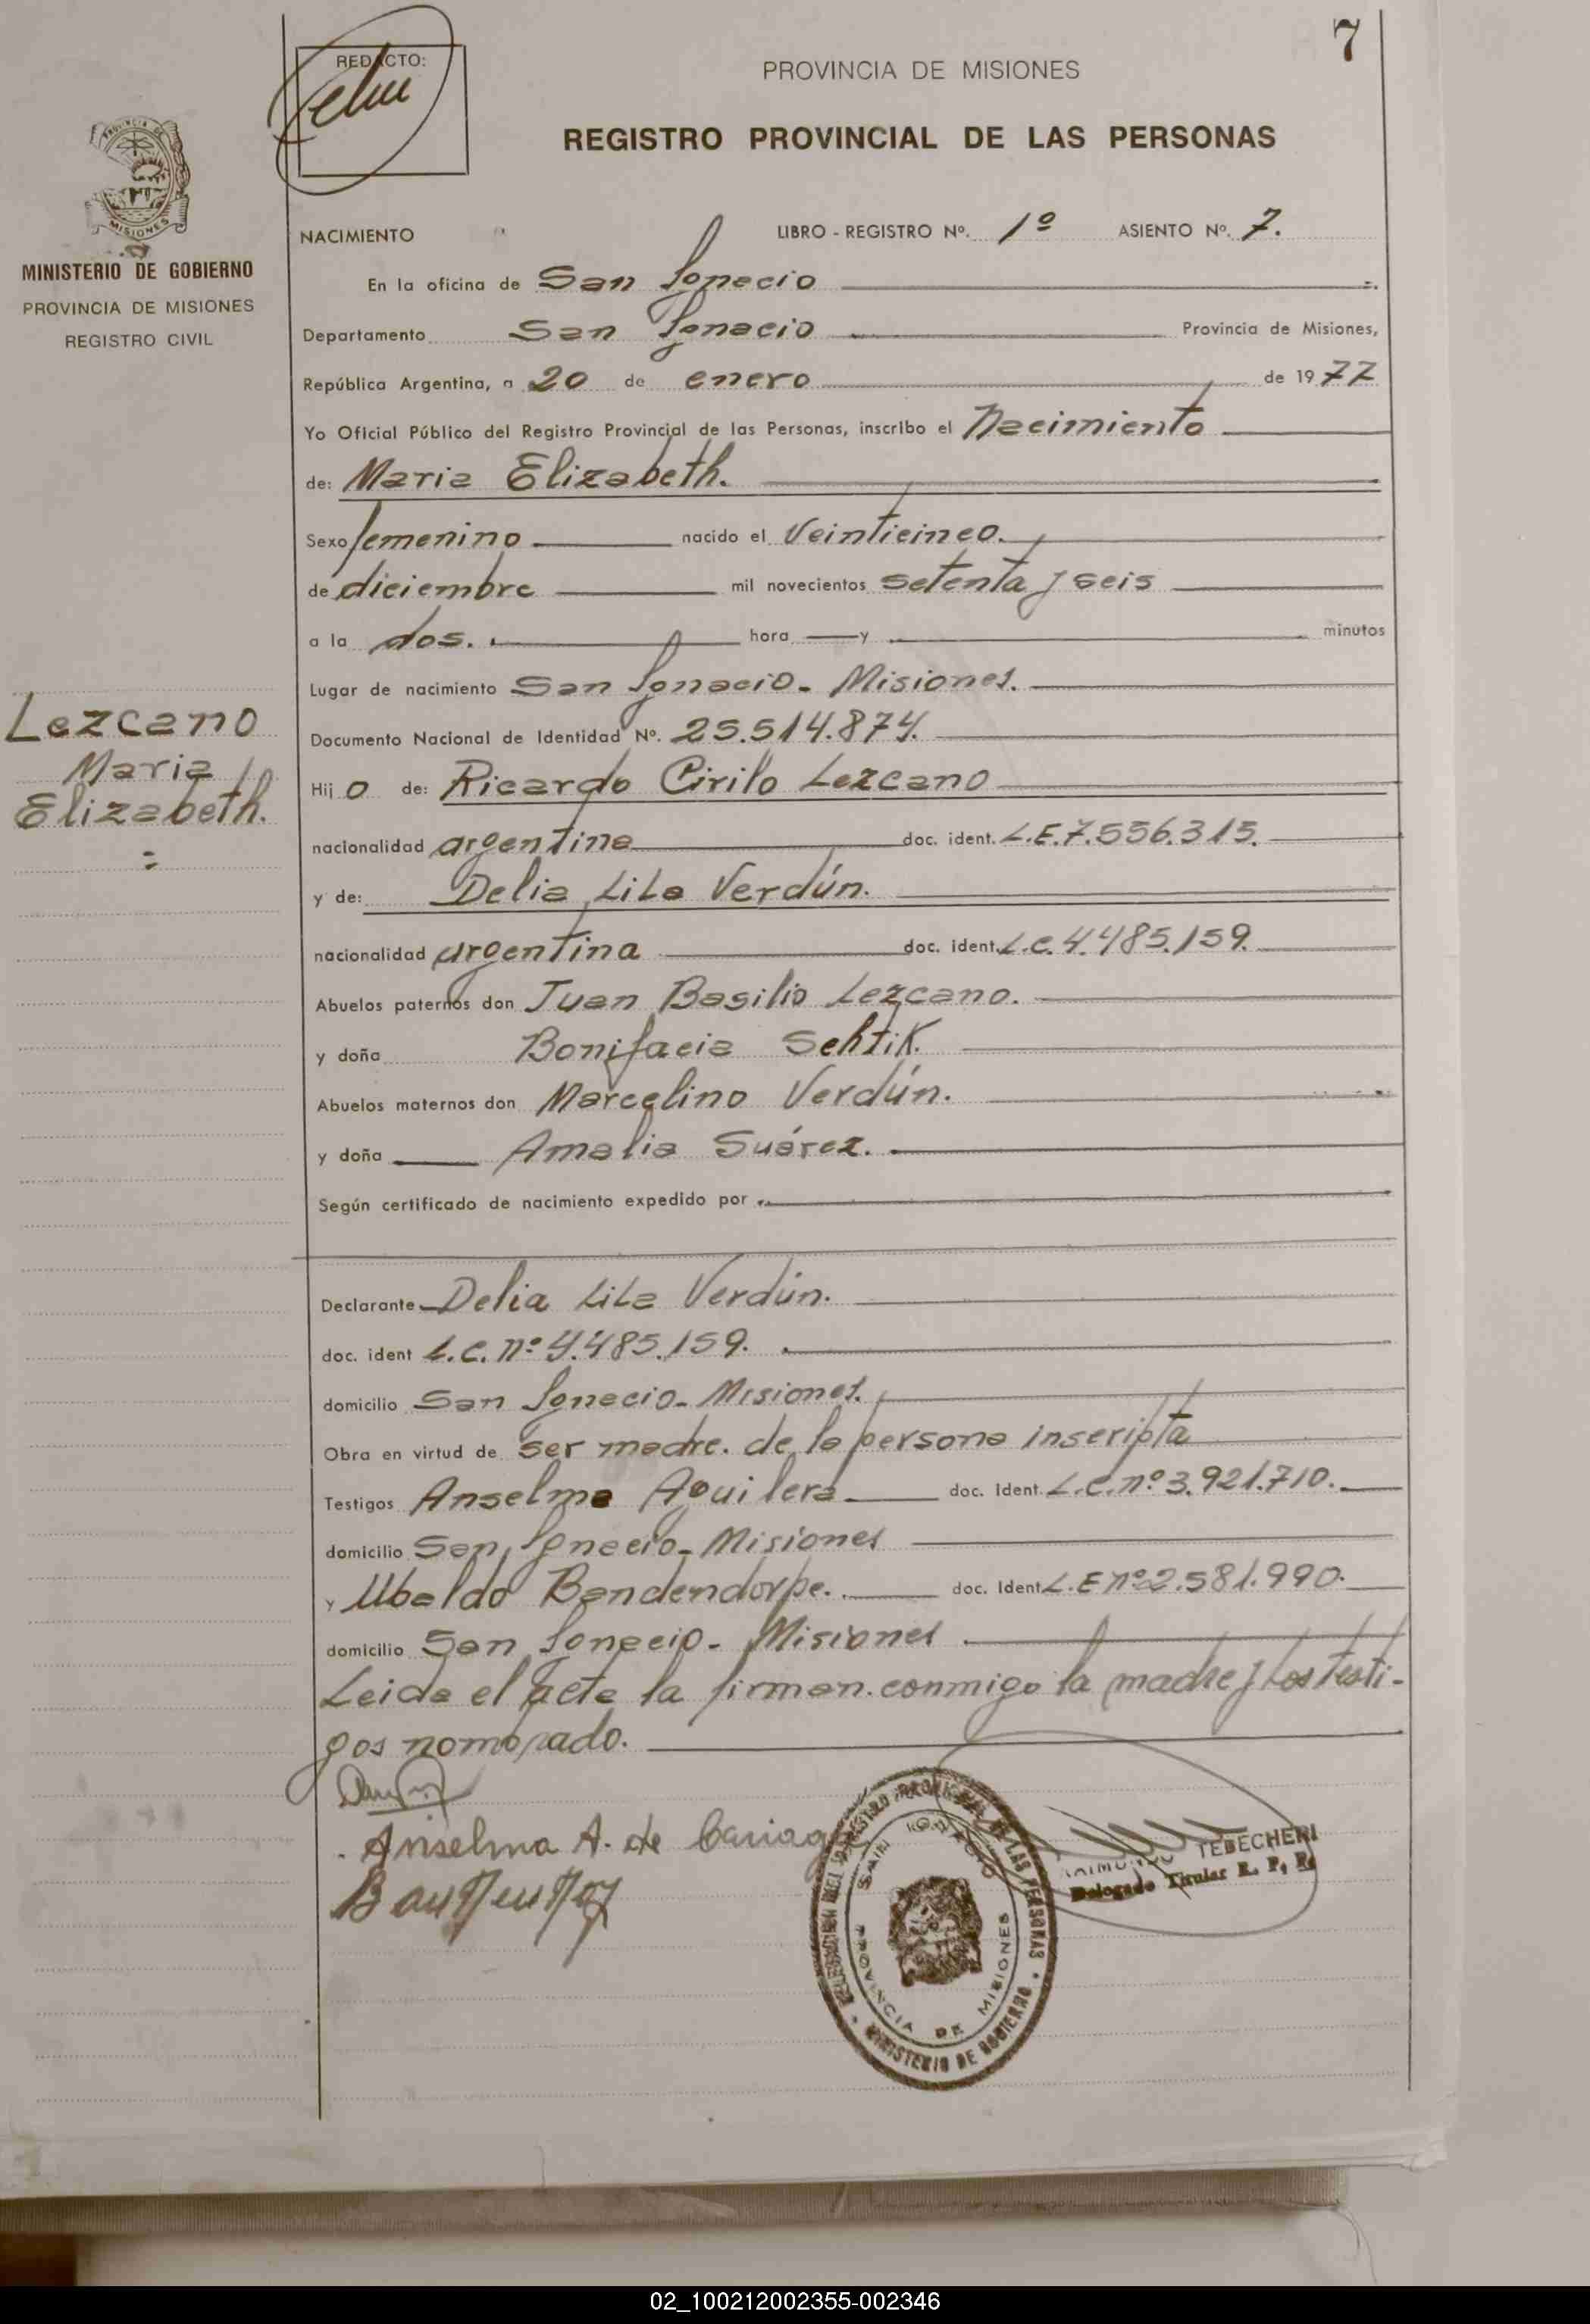 7
REDACTO:
PROVINCIA DE MISIONES
REGISTRO PROVINCIAL DE LAS PERSONAS
PROVINCIA DE
MISIONES
MINISTERIO DE GOBIERNO
PROVINCIA DE MISIONES
REGISTRO CIVIL
NACIMIENTO LIBRO - REGISTRO Nº. 1º ASIENTO Nº. 7.
En la oficina de San Ignacio
Departamento San Ignacio Provincia de Misiones,
República Argentina, a 20 de enero de 1977
Yo Oficial Público del Registro Provincial de las Personas, inscribo el Nacimiento
de: Maria Elizabeth.
Sexo femenino nacido el Veinticinco.
de diciembre mil novecientos setenta y seis
a la dos. hora y minutos
Lugar de nacimiento San Ignacio - Misiones.
Documento Nacional de Identidad Nº. 25.514.874.
Hij o de: Ricardo Cirilo Lezcano
nacionalidad argentina doc. ident. L.E. 7.556.315.
y de: Delia Lila Verdún.
nacionalidad argentina doc. ident. L.C. 4.485.159.
Abuelos paternos don Juan Basilio Lezcano.
y doña Bonifacia Schtik.
Abuelos maternos don Marcelino Verdún.
y doña Amalia Suárez.
Según certificado de nacimiento expedido por
Lezcano
Maria
Elizabeth.
Declarante Delia Lila Verdún.
doc. ident L.C. nº 4.485.159.
domicilio San Ignacio - Misiones.
Obra en virtud de ser madre. de la persona inscripta
Testigos Anselma Aguilera doc. Ident. L.C. nº 3.921.710.
domicilio San Ignacio - Misiones
y Ubaldo Bandendorpe. doc. Ident L.E nº 2.581.990.
domicilio San Ignacio - Misiones
Leida el acta la firman. conmigo la madre y los testi-
gos nombrado.
Anselma A. de
TEBECHERI
Delegado Titular R. P. P.
DELEGACION DEL REGISTRO PROVINCIAL DE LAS PERSONAS
SAN IGNACIO
PROVINCIA DE MISIONES
MINISTERIO DE GOBIERNO
02_100212002355-002346